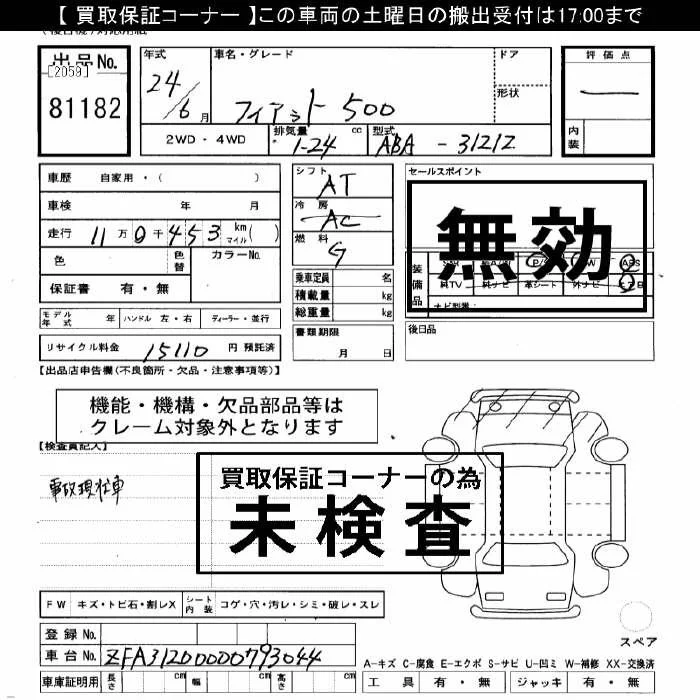 【 買取保証コーナー 】この車両の土曜日の搬出受付は17:00まで
出品No.
[2059]
81182
年式
24/6月
車名・グレード
フィアット 500
ドア
形状
評価点
内装
2WD・4WD
排気量
1-24 cc
型式
ABA - 31212
車歴 自家用・( )
車検 年 月
走行 11万0千453 km マイル( )
色
色替
カラーNo.
保証書 有・無
シフト
AT
冷房
AC
燃料
G
乗車定員 名
積載量 kg
総重量 kg
書類期限
月 日
セールスポイント
無効
装備品
純TV 純ナビ 革シート 外ナビ
ナビ型番:
後日品
モデル年式 年 ハンドル 左・右 ディーラー・並行
リサイクル料金 15110 円 預託済
【出品店申告欄(不良箇所・欠品・注意事項等)】
機能・機構・欠品部品等は
クレーム対象外となります
【検査員記入】
事故現状車
買取保証コーナーの為
未検査
FW キズ・トビ石・割レX
シート内装 コゲ・穴・汚レ・シミ・破レ・スレ
登録No.
車台No. ZFA31200000793044
車庫証明用 長さ cm 幅 cm 高さ cm
スペア
A-キズ C-腐食 E-エクボ S-サビ U-凹ミ W-補修 XX-交換済
工具 有・無 ジャッキ 有・無